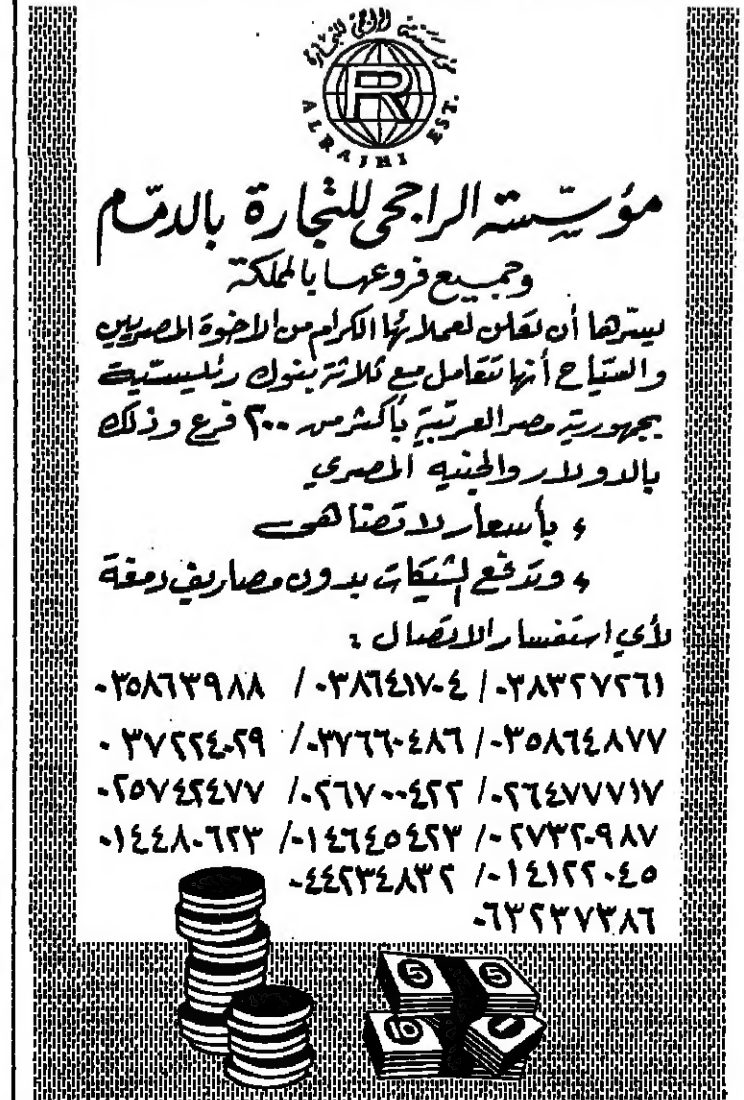 مؤسسة الراجحي للتجارة
ALRAJHI EST.
مؤسسة الراجحى للتجارة بالدمّام
وجميع فروعها بالمملكة
يسرّها أن تعلن لعملائها الكرام من الاخوة المصريين
والسيّاح أنها تتعامل مع ثلاثة بنوك رئيسيّة
بجمهورية مصر العربيّة بأكثر من ٢٠٠ فرع وذلك
بالدولار والجنيه المصرى
، بأسعار لا تضاهى
، وتدفع الشيكات بدون مصاريف دمغة
لأي استفسار الاتصال :
٠٣٨٣٢٧٢٦١ / ٠٣٨٦٤١٧٠٤ / ٠٣٥٨٦٣٩٨٨
٠٣٥٨٦٤٨٧٧ / ٠٣٧٦٦٠٤٨٦ / ٠٣٧٢٢٤٠٢٩
٠٢٦٤٧٧٧١٧ / ٠٢٦٧٠٠٤٢٢ / ٠٢٥٧٤٢٤٧٧
٠٢٧٣٢٠٩٨٧ / ٠١٤٦٤٥٤٢٣ / ٠١٤٤٨٠٦٢٣
٠١٤١٢٢٠٤٥ / ٠٤٤٢٣٤٨٣٢
٠٦٣٢٣٧٣٨٦